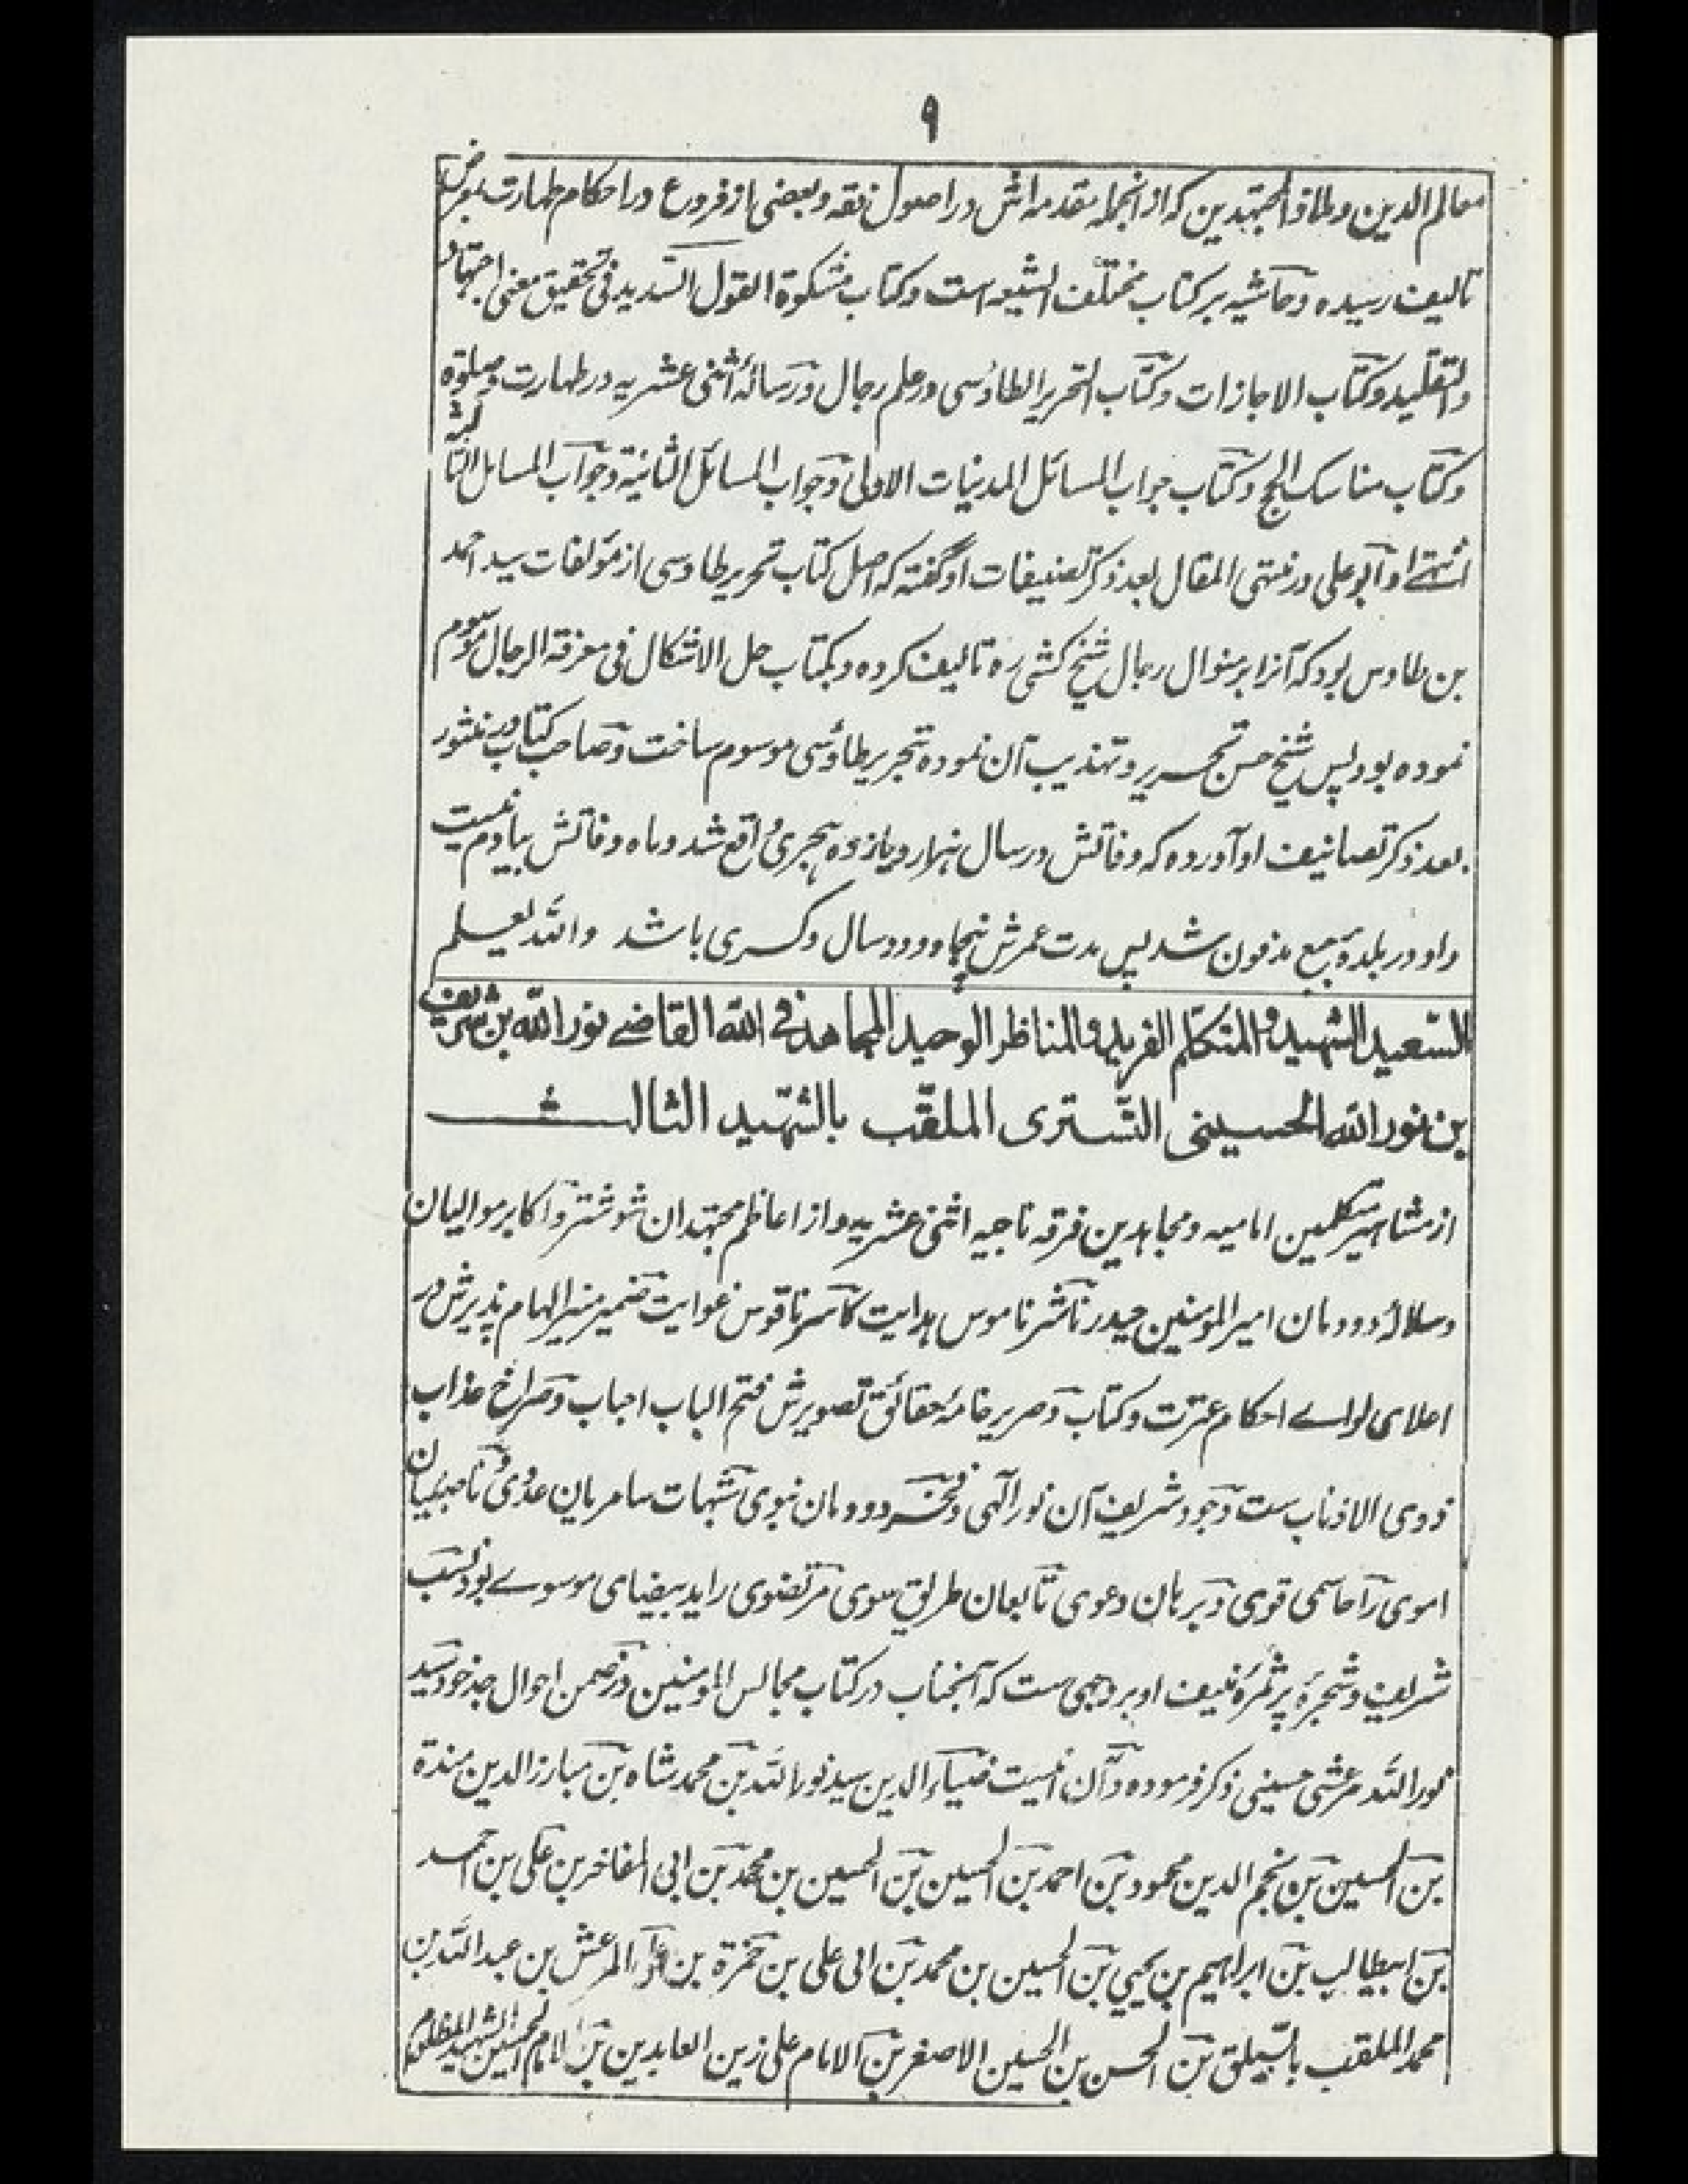 ۹
معالم الدین و ملاذ المجتهدین که از انجمله مقدمه اش در اصول فقه و بعضی از فروع در احکام طهارت بمعرض
تالیف رسیده و حاشیه بر کتاب مختلف الشیعه است و کتاب مشکوة القول السدید فی تحقیق معنی اجتهاد
والتقلید و کتاب الاجازات و کتاب التحریر الطاوسی در علم رجال و رسالۀ اثنی عشریه در طهارت و صلوة
و کتاب مناسک الحج و کتاب جواب المسائل المدنیات الاولی و جواب المسائل الثانیة و جواب المسائل الثالثه
انتهی و ابو علی در منتهی المقال بعد ذکر تصنیفات او گفته که اصل کتاب تحریر طاوسی از مؤلفات سید احمد
بن طاوس بود که آنرا بر منوال رجال شیخ کشی ره تالیف کرده و بکتاب حل الاشکال فی معرفة الرجال موسوم
نموده بود پس شیخ حسن تحریر و تهذیب آن نموده بتحریر طاؤسی موسوم ساخت و صاحب کتاب در منثور
بعد ذکر تصانیف او آورده که وفاتش در سال هزار و یازده هجری واقع شد و ماه وفاتش بیادم نیست
و او در بلدۀ جبع مدفون شد پس مدت عمرش پنجاه و دو سال و کسری باشد والله یعلم
السعید الشهید والمتکلم الفرید والمناظر الوحید المجاهد فی الله القاضی نور الله بن شریف
بن نور الله الحسینی التستری الملقب بالشهید الثالث
از مشاهیر متکلمین امامیه و مجاهدین فرقه ناجیه اثنی عشریه و از اعاظم مجتهدان شوشتر و اکابر موالیان
و سلالۀ دودمان امیر المومنین حیدر ناشر ناموس هدایت کاسر ناقوس غوایت ضمیر منیر الهام پذیرش در
اعلای لوای احکام عترت و کتاب و صریر خامۀ حقائق تصویرش فتح الباب احباب و صراخ عذاب
ذوی الاذناب ست وجود شریف آن نور الهی و فخر دودمان نبوی شبهات سامریان عدوی و ناصبیان
اموی را حاسمی قوی و برهان دعوی تابعان طریق سوی مرتضوی را ید بیضای موسوی بود نسب
شریف و شجرۀ پر ثمرۀ منیف او بر وجهی ست که آنجناب در کتاب مجالس المومنین در ضمن احوال جد خود سید
نور الله مرعشی حسینی ذکر فرموده و آن اینست ضیاء الدین سید نور الله بن محمد شاه بن مبارز الدین مندة
بن الحسین بن نجم الدین محمود بن احمد بن الحسین بن الحسین بن محمد بن ابی المفاخر بن علی بن احمد
بن ابیطالب بن ابراهیم بن یحیی بن الحسین بن محمد بن ابی علی بن حمزة بن علی المرعش بن عبد الله بن
محمد الملقب بالسیلق بن الحسن بن الحسین الاصغر بن الامام علی زین العابدین بن الامام الحسین الشهید المظلوم